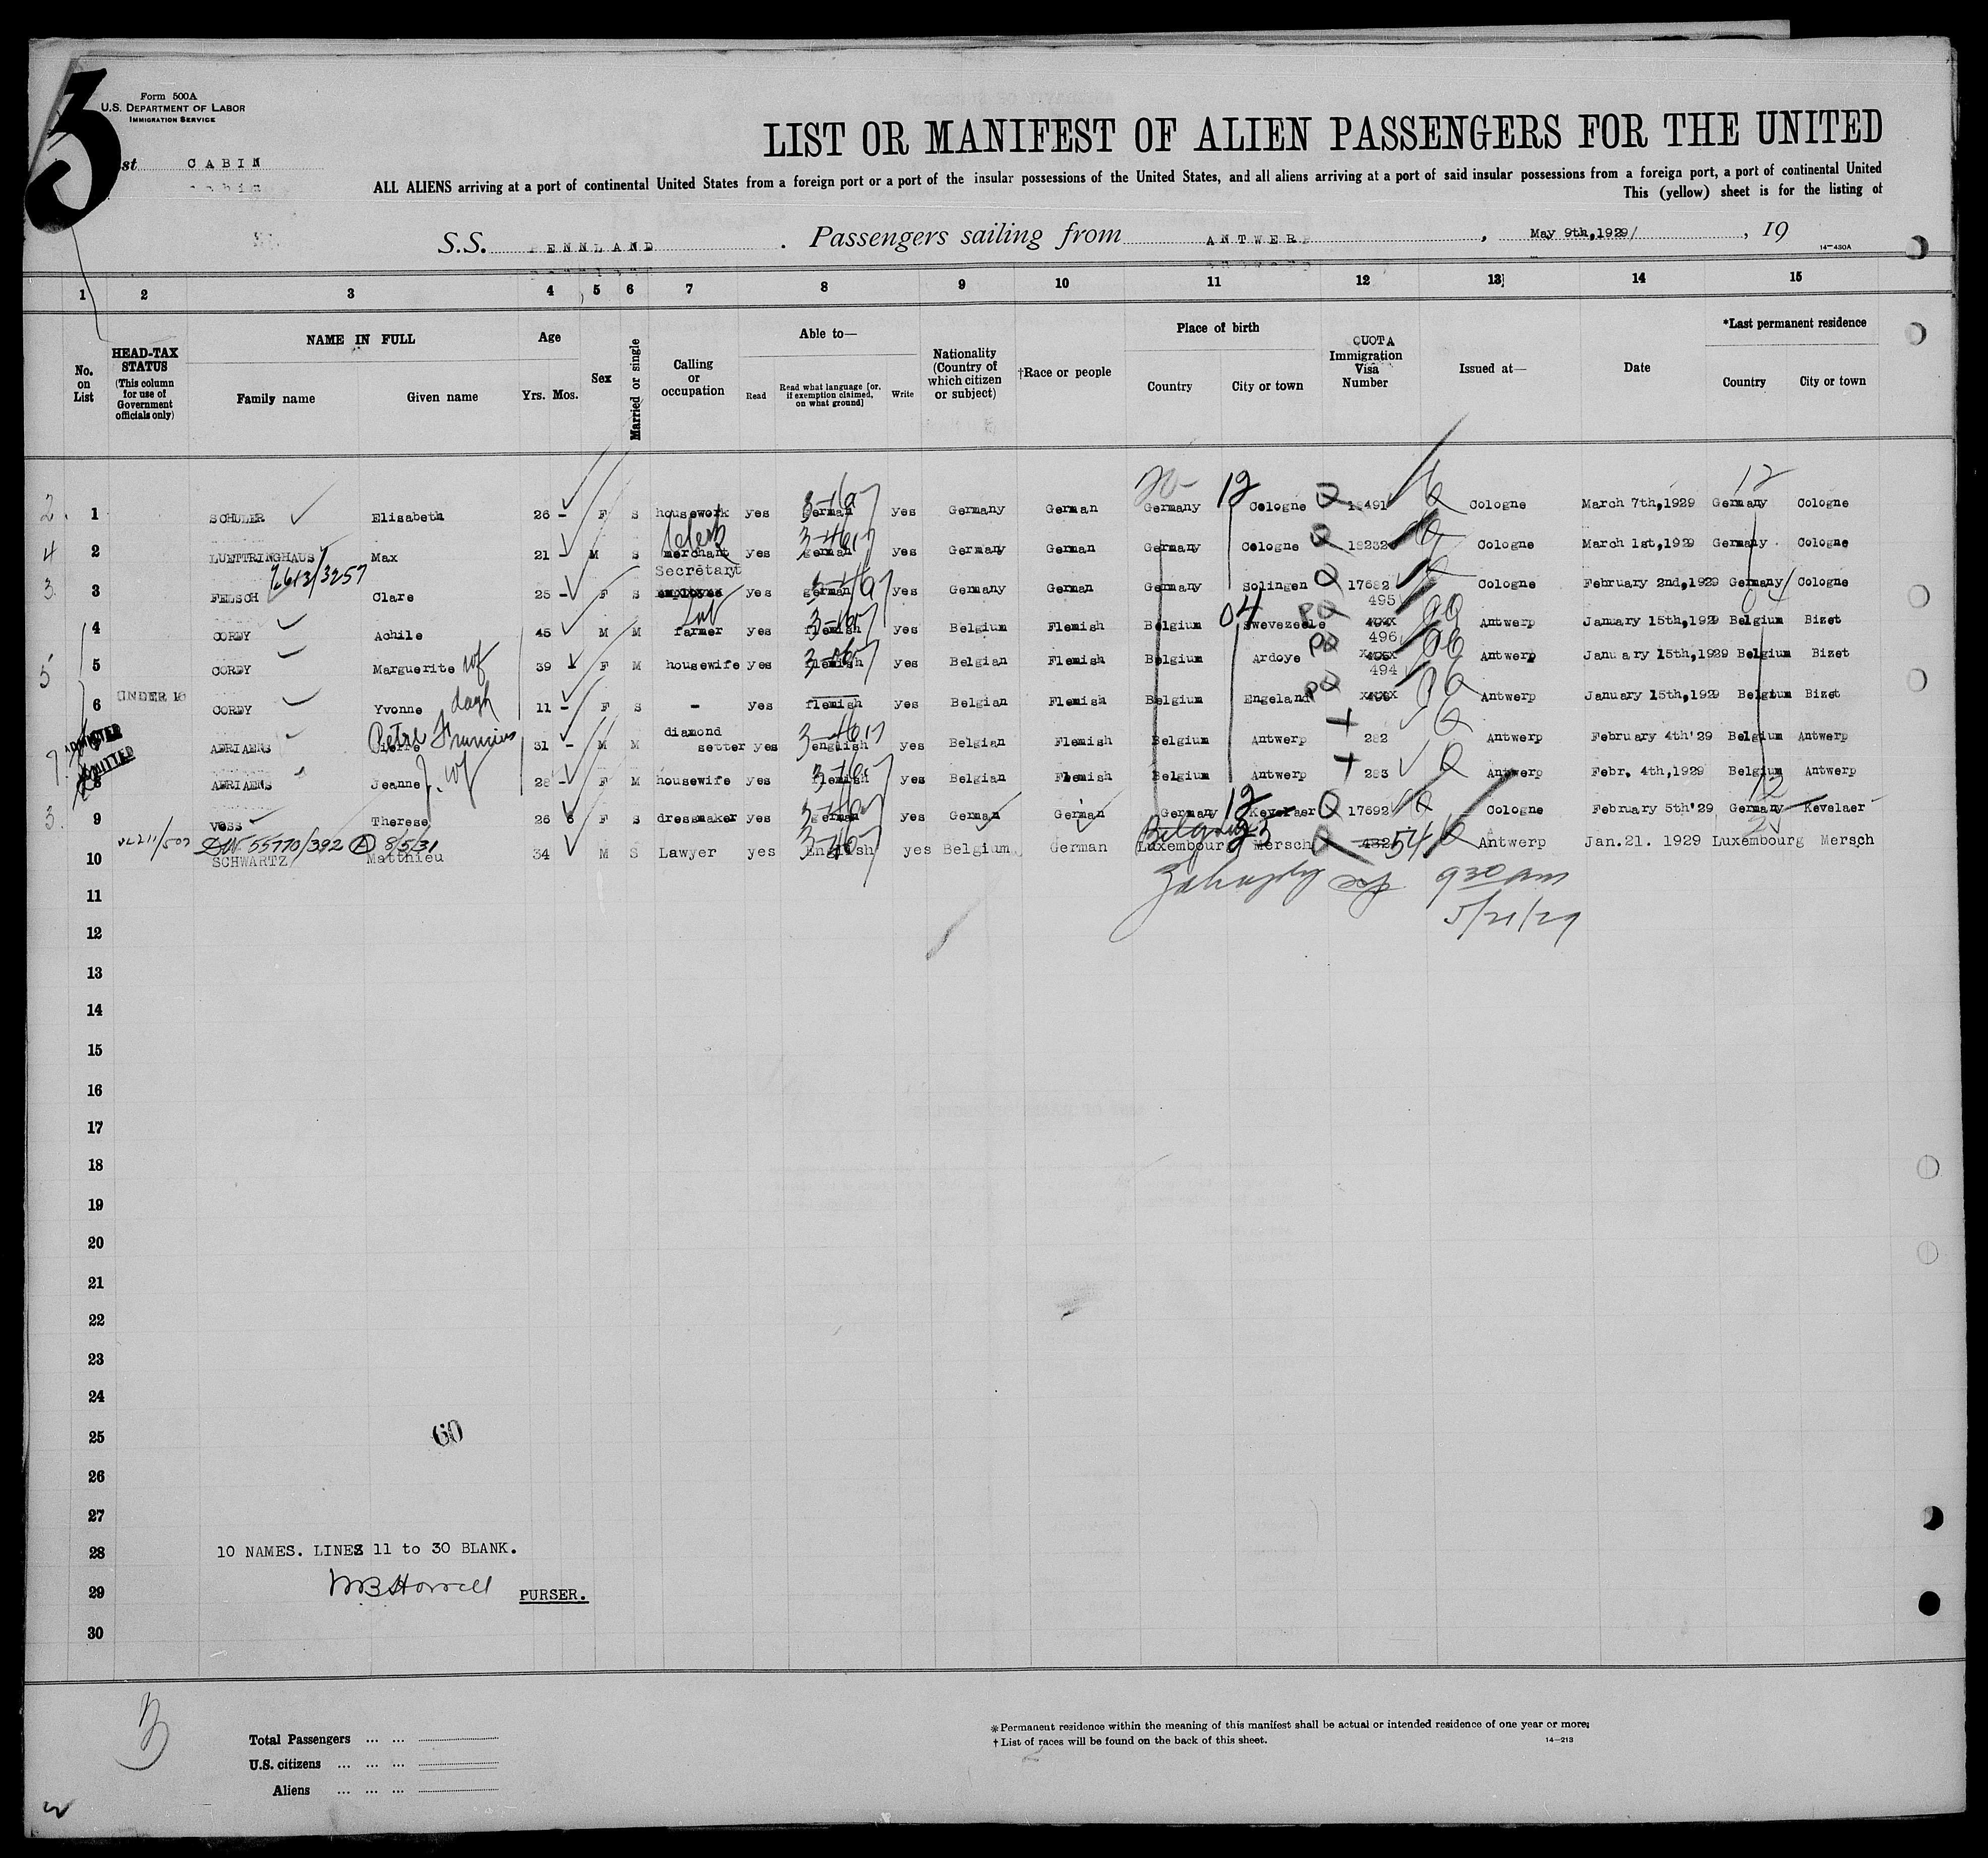 3
Form 500A
U.S. DEPARTMENT OF LABOR
IMMIGRATION SERVICE
st CABIN
LIST OR MANIFEST OF ALIEN PASSENGERS FOR THE UNITED
ALL ALIENS arriving at a port of continental United States from a foreign port or a port of the insular possessions of the United States, and all aliens arriving at a port of said insular possessions from a foreign port, a port of continental United
This (yellow) sheet is for the listing of
S.S. PENNLAND . Passengers sailing from ANTWERP , May 9th,1929/ , 19
14-430A
1 2 3 4 5 6 7 8 9 10 11 12 13 14 15
No. on List
HEAD-TAX STATUS (This column for use of Government officials only)
NAME IN FULL Family name Given name
Age Yrs. Mos.
Sex
Married or single
Calling or occupation
Able to— Read Read what language [or, if exemption claimed, on what ground] Write
Nationality (Country of which citizen or subject)
†Race or people
Place of birth Country City or town
QUOTA Immigration Visa Number
Issued at—
Date
*Last permanent residence Country City or town
20- 12 12
2 1 SCHULER Elisabeth 26 - F S housework yes german 3-16 yes Germany German Germany Cologne Q 18491 Q Cologne March 7th,1929 Germany Cologne
4 2 LUETTRINGHAUS Max 21 - M S merchant Clerk yes german yes Germany German Germany Cologne Q 18232 Cologne March 1st,1929 Germany Cologne
7613/3257
3 3 FELSCH Clare 25 - F S Secretary yes german yes Germany German Germany Solingen Q 17682 Cologne February 2nd,1929 Germany Cologne
4 CORDY Achile 45 M M farmer yes flemish yes Belgium Flemish Belgium 04 Swevezeele PQ 495 Antwerp January 15th,1929 Belgium Bizet
5 5 CORDY Marguerite wf 39 F M housewife yes flemish yes Belgian Flemish Belgium Ardoye PQ 496 Antwerp January 15th,1929 Belgium Bizet
6 UNDER 16 CORDY Yvonne dagh 11 - F S - yes flemish yes Belgian Flemish Belgium Engeland PQ 494 Antwerp January 15th,1929 Belgium Bizet
ADMITTED AERIAENS Pierre Petre Francius 31 - M M diamond setter yes english yes Belgian Flemish Belgium Antwerp + 282 Q Antwerp February 4th'29 Belgium Antwerp
ADMITTED 8 AERIAENS Jeanne J. wf 28 - F M housewife yes flemish yes Belgian Flemish Belgium Antwerp + 283 Q Antwerp Febr. 4th,1929 Belgium Antwerp
3 9 Vess Therese 26 6 F S dressmaker yes german yes German German Germany 12 Kevelaer Q 17692 Q Cologne February 5th'29 Germany 12 Kevelaer
55770/392 A 8/5/31
10 SCHWARTZ Matthieu 34 M S Lawyer yes English yes Belgium German Luxembourg Mersch 432 54 Q Antwerp Jan.21. 1929 Luxembourg Mersch
9 30 am
5/21/29
11
12
13
14
15
16
17
18
19
20
21
22
23
24
25
60
26
27
28 10 NAMES. LINES 11 to 30 BLANK.
29 PURSER.
30
3
Total Passengers ... ...
U.S. citizens ... ... ...
Aliens ... ... ...
*Permanent residence within the meaning of this manifest shall be actual or intended residence of one year or more.
†List of races will be found on the back of this sheet.
14-213